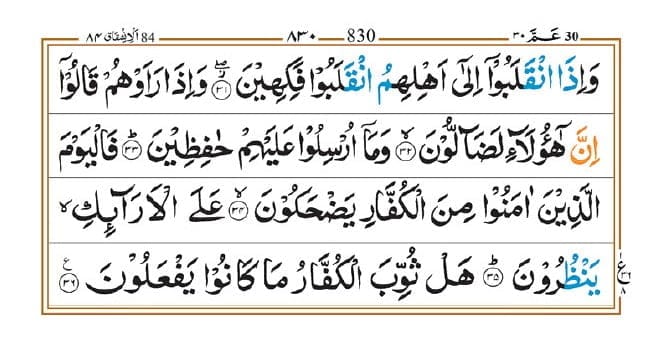 الانشقاق 84 ٨٤ ٨٣٠ 830 عم ٣٠ 30
وَاِذَا انْقَلَبُوْۤا اِلٰۤى اَهْلِهِمُ انْقَلَبُوْا فَكِهِيْنَ ﴿٣١﴾ وَاِذَا رَاَوْهُمْ قَالُوْۤا
اِنَّ هٰۤؤُلَآءِ لَضَآلُّوْنَ ﴿٣٢﴾ وَمَاۤ اُرْسِلُوْا عَلَيْهِمْ حٰفِظِيْنَ ﴿٣٣﴾ فَالْيَوْمَ
الَّذِيْنَ اٰمَنُوْا مِنَ الْكُفَّارِ يَضْحَكُوْنَ ﴿٣٤﴾ عَلَى الْاَرَآئِكِ
يَنْظُرُوْنَ ﴿٣٥﴾ هَلْ ثُوِّبَ الْكُفَّارُ مَا كَانُوْا يَفْعَلُوْنَ ﴿٣٦﴾